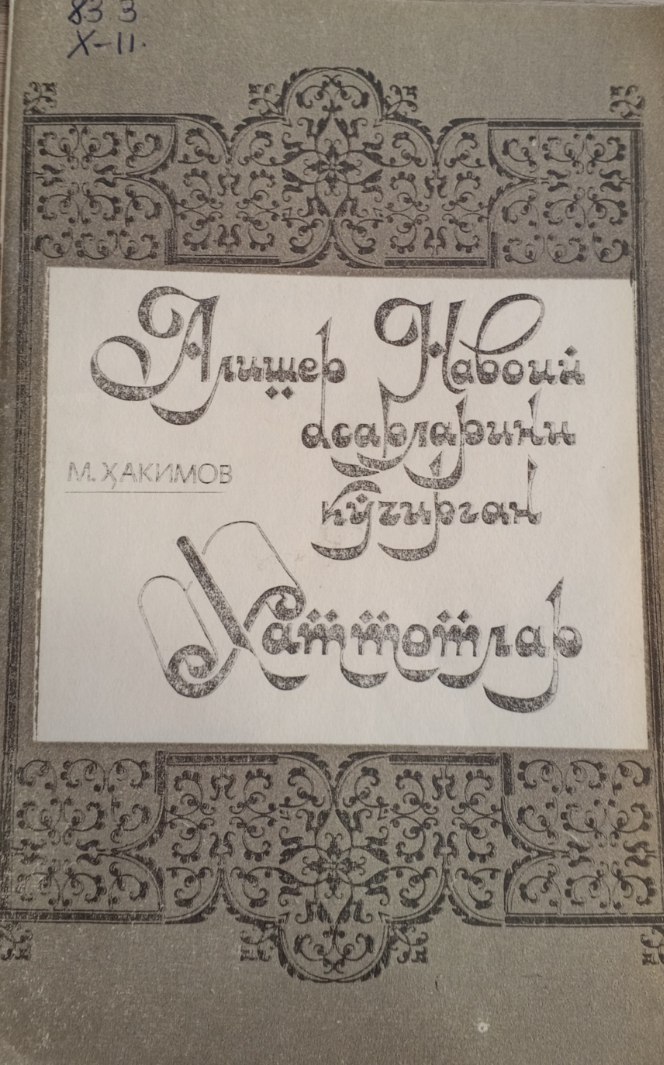 83 3
Х-11.
Алишер Навоий
асарларини
М. ҲАКИМОВ
кўчирган
Хаттотлар